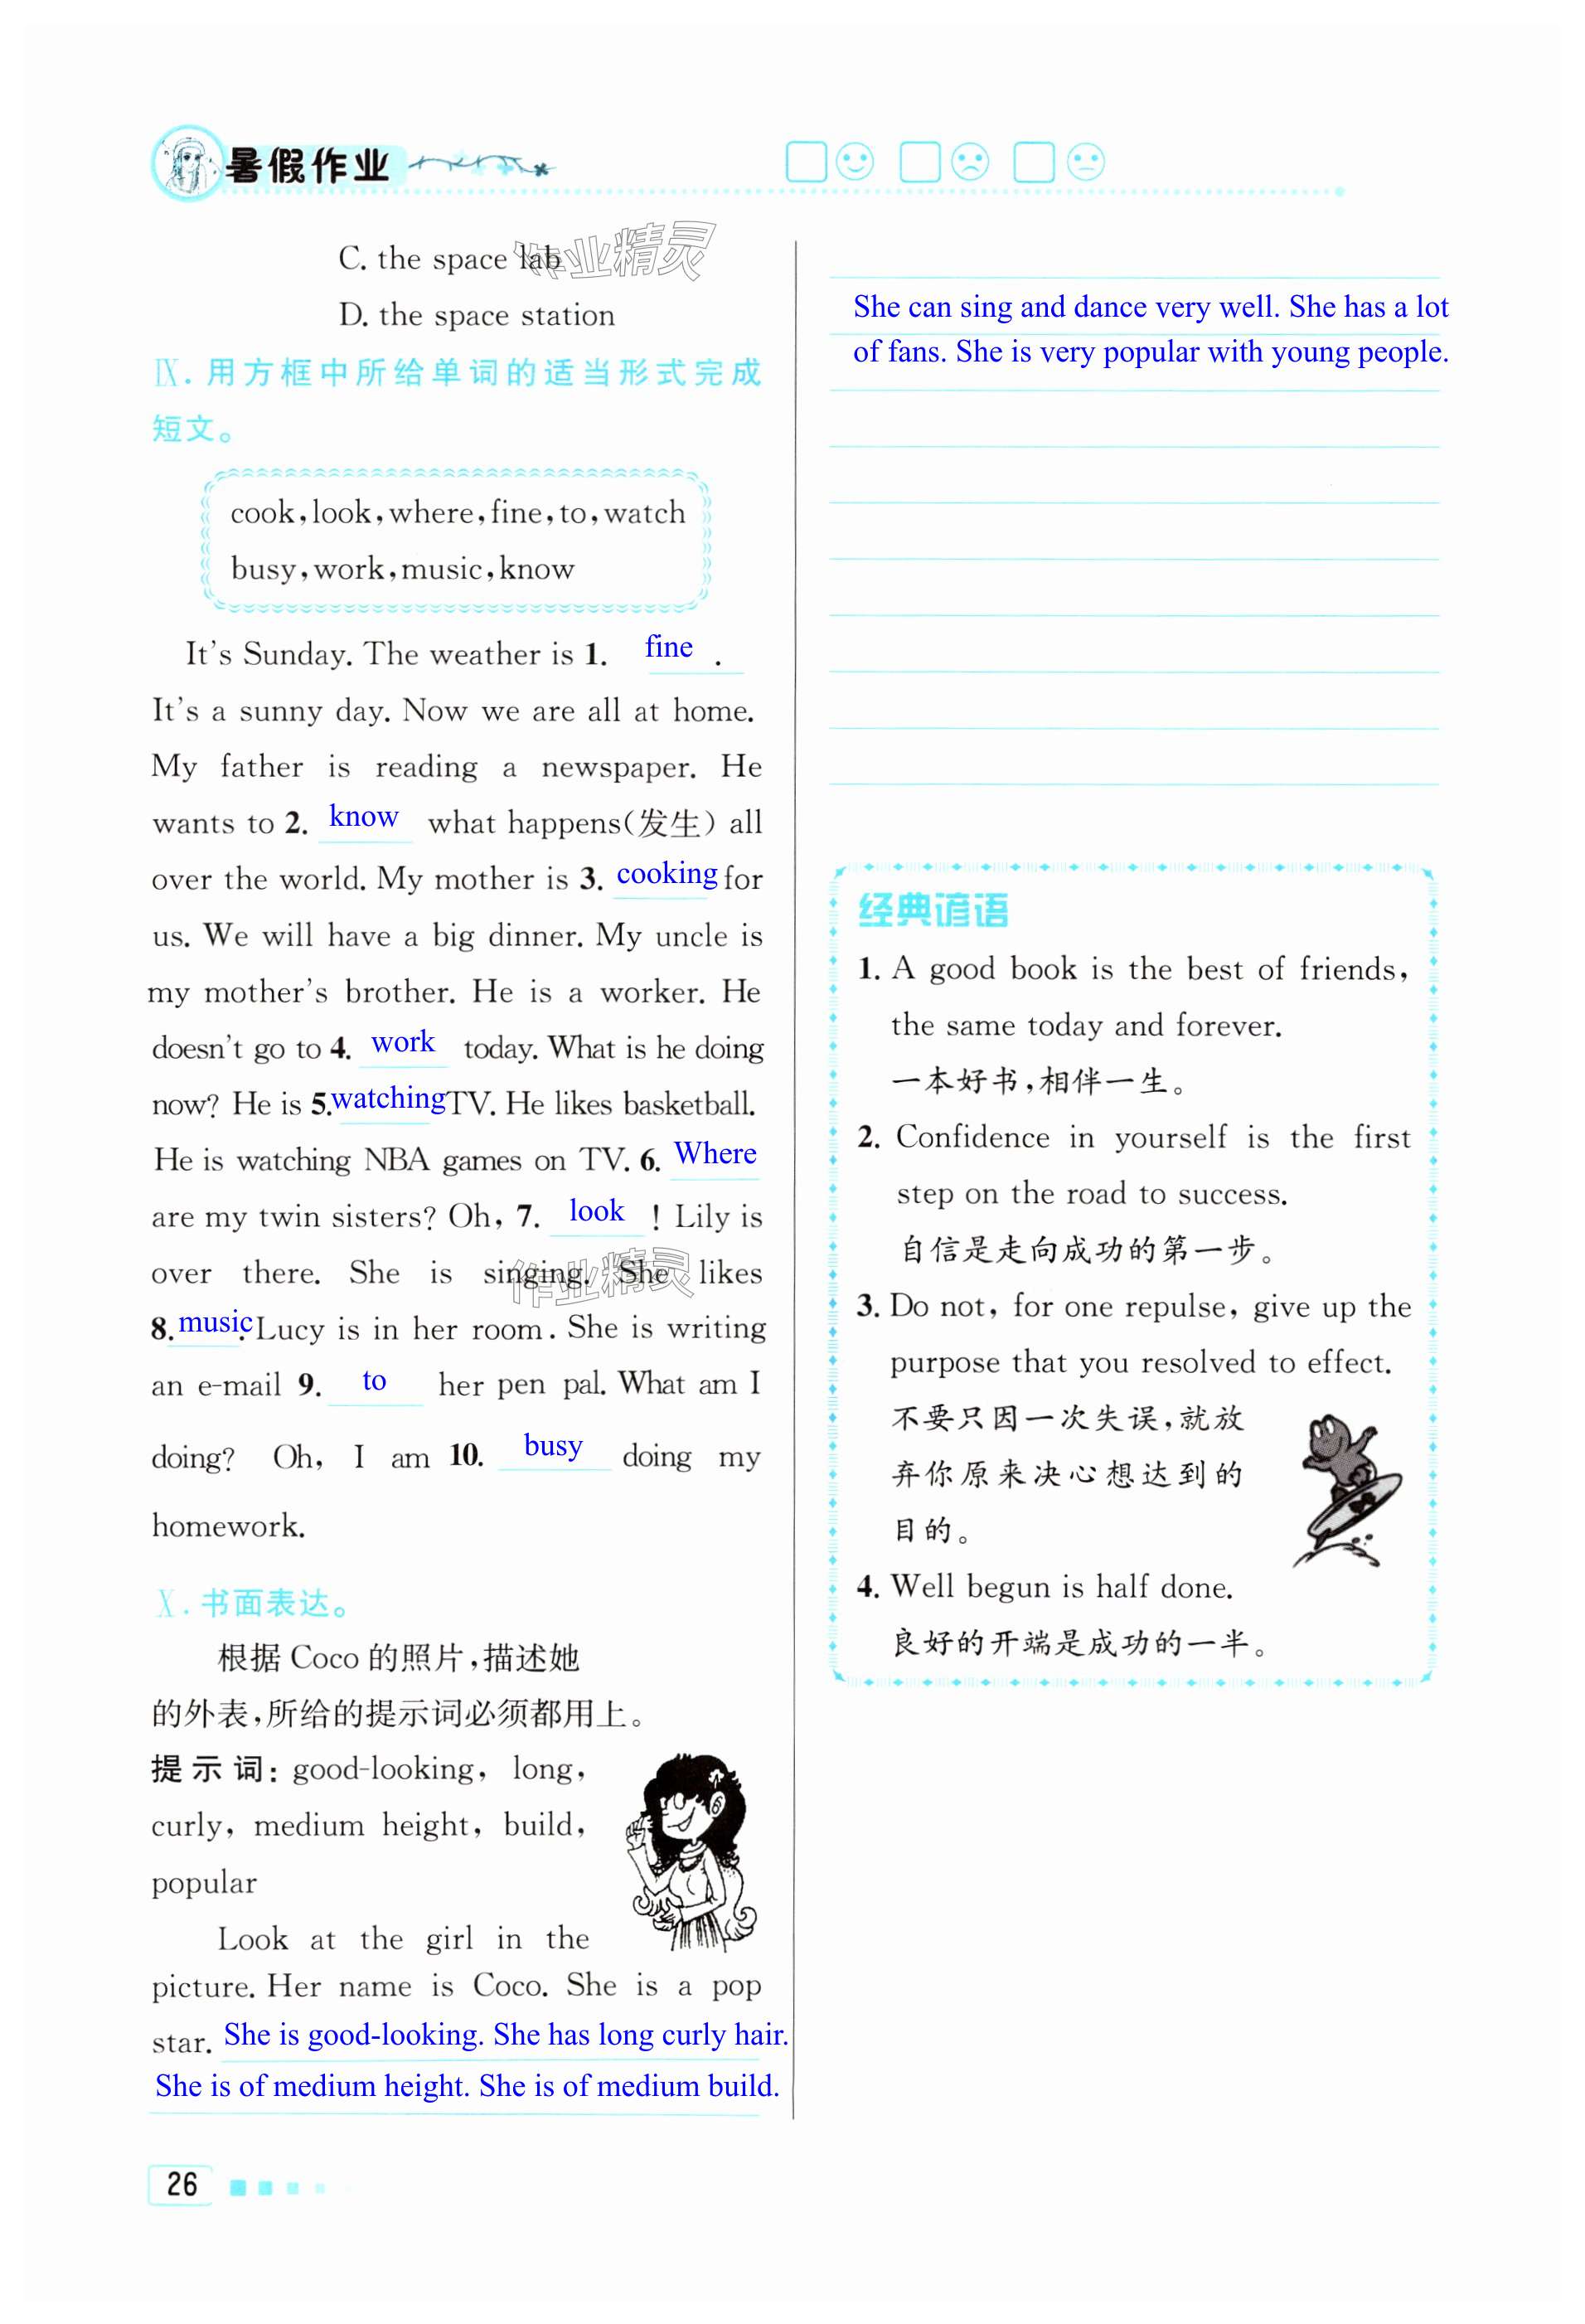 暑假作业
C. the space lab
作业精灵
D. the space station
Ⅸ. 用方框中所给单词的适当形式完成
短文。
cook, look, where, fine, to, watch
busy, work, music, know
It's Sunday. The weather is 1. fine .
It's a sunny day. Now we are all at home.
My father is reading a newspaper. He
wants to 2. know what happens(发生) all
over the world. My mother is 3. cooking for
us. We will have a big dinner. My uncle is
my mother's brother. He is a worker. He
doesn't go to 4. work today. What is he doing
now? He is 5. watching TV. He likes basketball.
He is watching NBA games on TV. 6. Where
are my twin sisters? Oh, 7. look ! Lily is
over there. She is singing. She likes
作业精灵
8. music. Lucy is in her room. She is writing
an e-mail 9. to her pen pal. What am I
doing? Oh, I am 10. busy doing my
homework.
Ⅹ. 书面表达。
根据 Coco 的照片,描述她
的外表,所给的提示词必须都用上。
提示词: good-looking, long,
curly, medium height, build,
popular
Look at the girl in the
picture. Her name is Coco. She is a pop
star. She is good-looking. She has long curly hair.
She is of medium height. She is of medium build.
26
She can sing and dance very well. She has a lot
of fans. She is very popular with young people.
经典谚语
1. A good book is the best of friends,
the same today and forever.
一本好书,相伴一生。
2. Confidence in yourself is the first
step on the road to success.
自信是走向成功的第一步。
3. Do not, for one repulse, give up the
purpose that you resolved to effect.
不要只因一次失误,就放
弃你原来决心想达到的
目的。
4. Well begun is half done.
良好的开端是成功的一半。